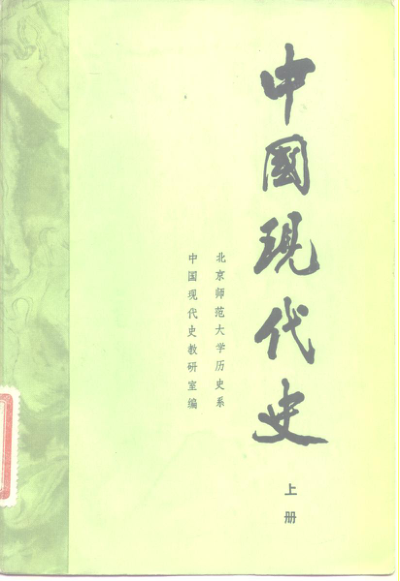 中國現代史
上册
北京师范大学历史系
中国现代史教研室编